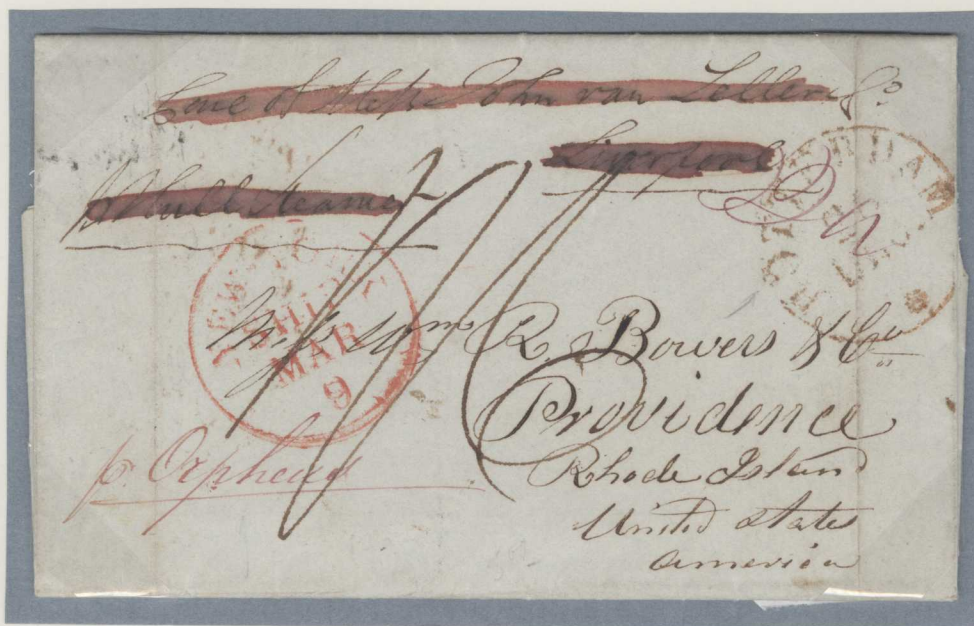 Care of Messrs John van Zeller & Co
Liverpool
p Hull Steamer
ROTTERDAM
NEW YORK
SHIP
MAR
9
Messrs Saml R. Bowers & Co
Providence
p. Orpheus
Rhode Island
United States
America